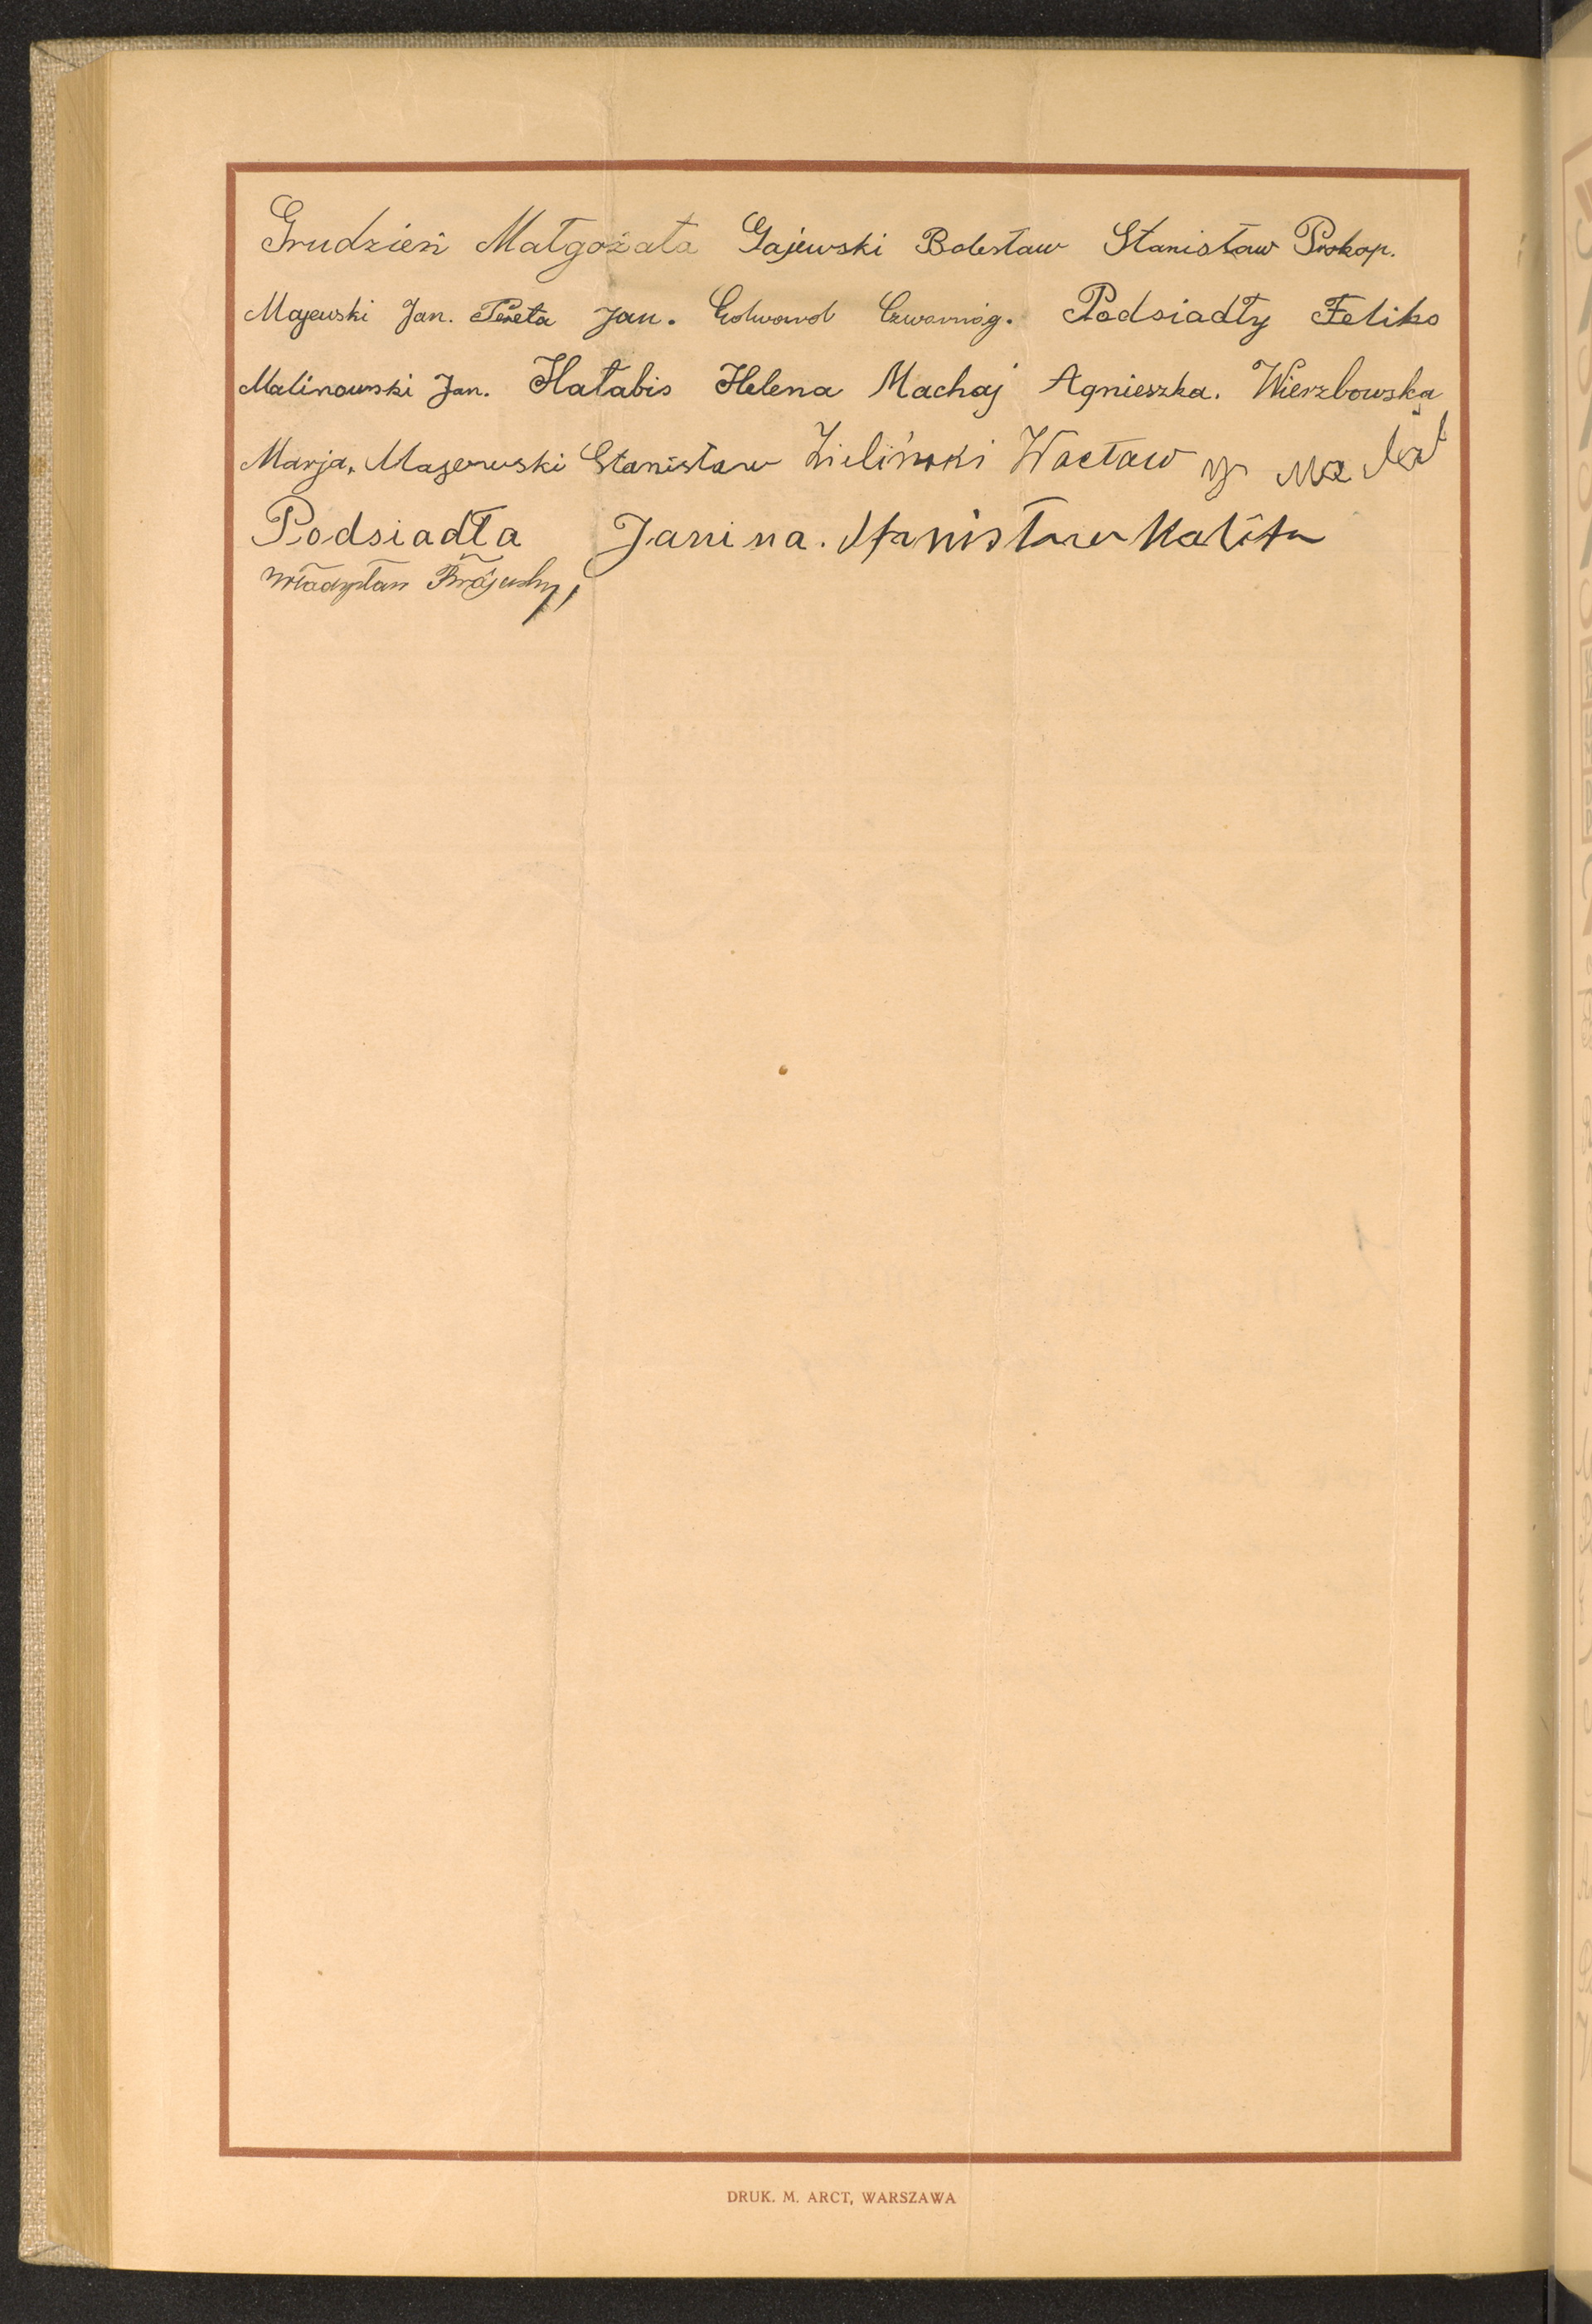 Grudzień Małgożata Gajewski Bolesław Stanisław Prokop.
Majewski Jan. Peneta Jan. Edward Czwarnóg. Podsiadły Feliks
Malinowski Jan. Hałabis Helena Machaj Agnieszka. Wierzbowska
Marja, Majewski Stanisław Zieliński Wacław
Podsiadła Janina. Stanisław Kalita
Władysław
DRUK. M. ARCT, WARSZAWA